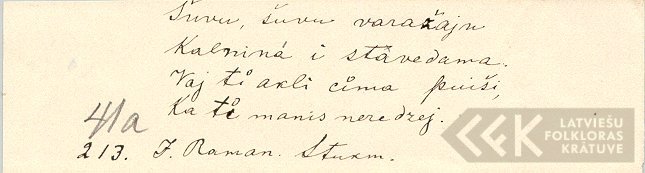 Šuvu, šuvu varažaju
Kalniņá i stávedama.
Vaj tí akli címa puiši,
Ka tí manis neredzej.
41a
213. J. Raman. Sturm.
LATVIEŠU
FOLKLORAS
KRĀTUVE